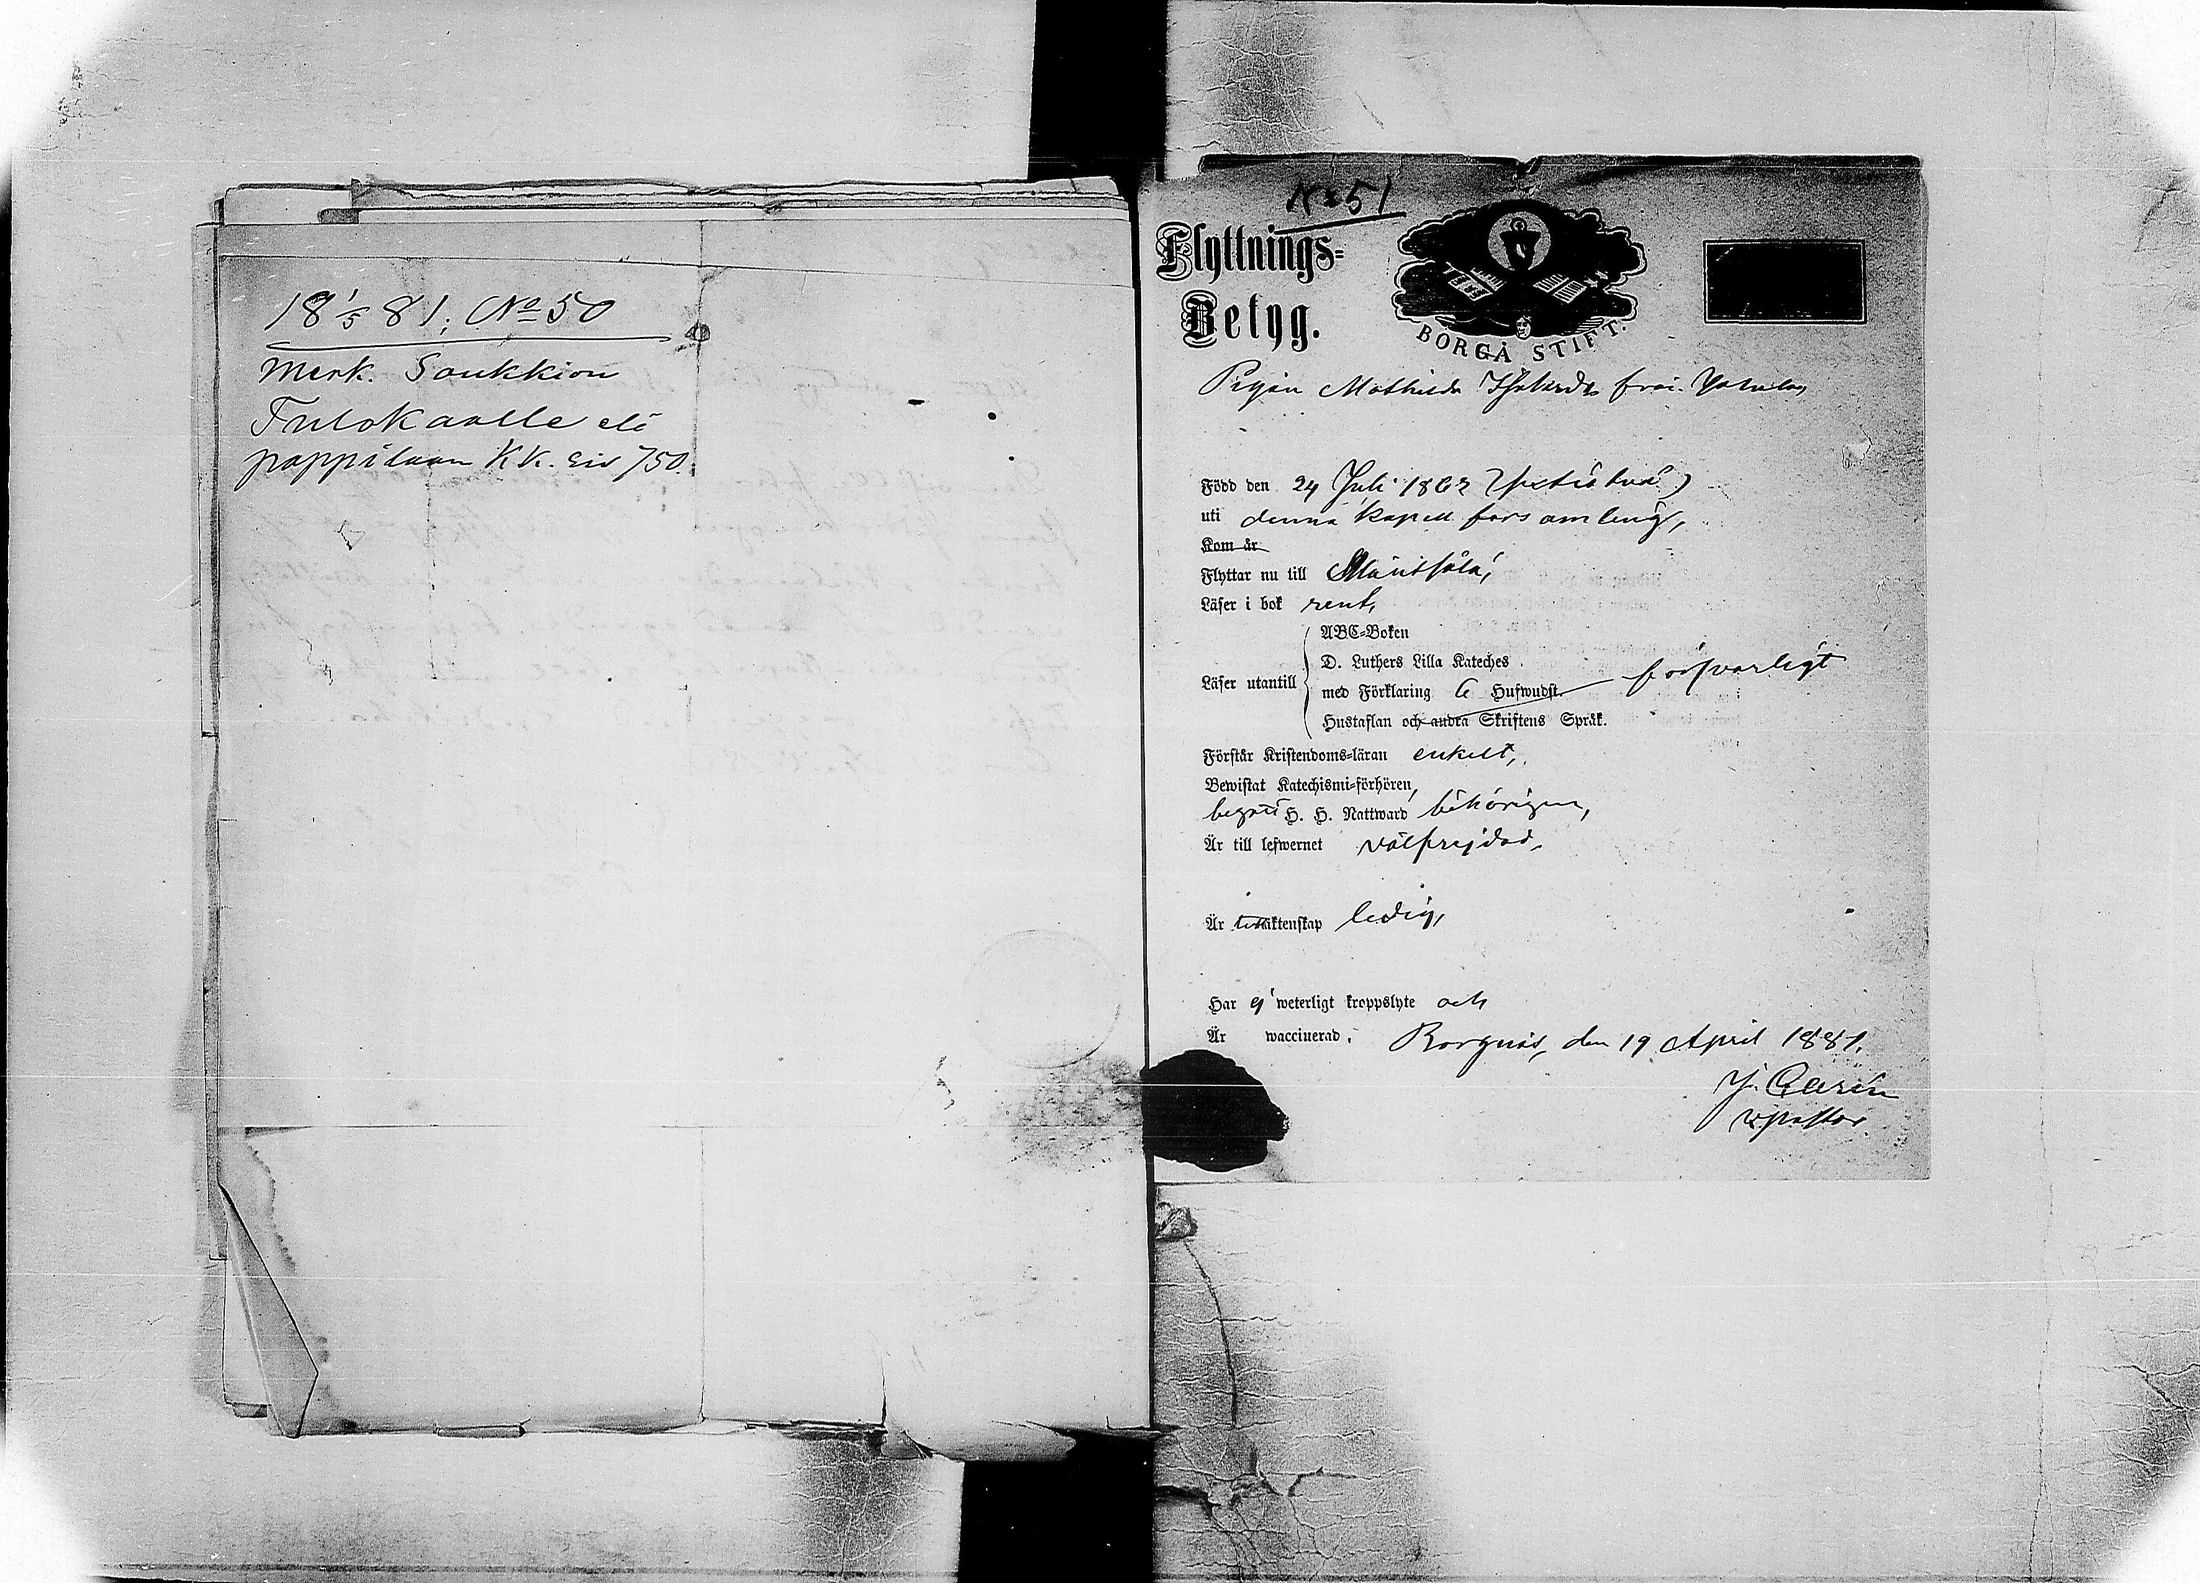 18 1/5 81; No 50
Merk. Saukkion
Tulokaalle eli
pappilaan KK. siv 750.
No 51
Flyttnings-
Betyg.
BORGÅ STIFT.
Pigan Mathilda från
Född den 24 Juli 1862 (sextiotvå)
uti denna kapell församling,
Kom år
Flyttar nu till Mäntsälä,
Läser i bok rent,
ABC-Boken
D. Luthers Lilla Kateches
Läser utantill med Förklaring 6 Hufwudst. försvarligt
Hustaflan och andra Skriftens Språk.
Förstår Kristendoms-läran enkelt,
Bewistat Katechismi-förhören,
begått H. H. Nattward behörigen,
Är till lefwernet välfrejdad,
Är äktenskap ledig,
Har ej weterligt kroppslyte och
Är waccinerad. Borgnäs, den 19 April 1881.
J. Carén
v. pastor